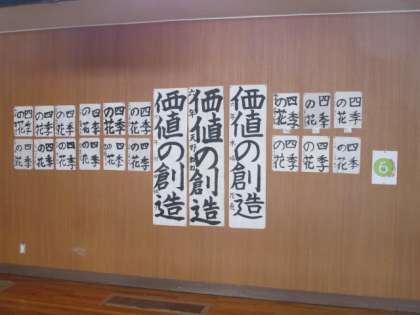 四季
の花
四季
の花
四季
の花
四季
の花
四季
の花
四季
の花
四季
の花
四季
の花
四季
の花
四季
の花
四季
の花
四季
の花
価値の創造
価値の創造
六年
価値の創造
四季
の花
四季
の花
四季
の花
四季
の花
四季
の花
四季
の花
6